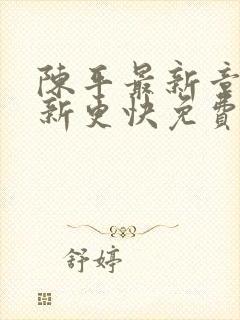 陳平最新章
新更快免費
舒婷